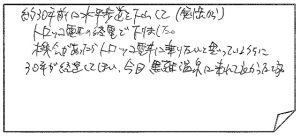 約30年前に水平歩道を下山して(健脚の頃)
トロッコ電車の経営で下山した。
機会があったらトロッコ電車に乗りたいと思っているうちに
30年が経過してしまい、今日黒薙温泉に来れて良かったです